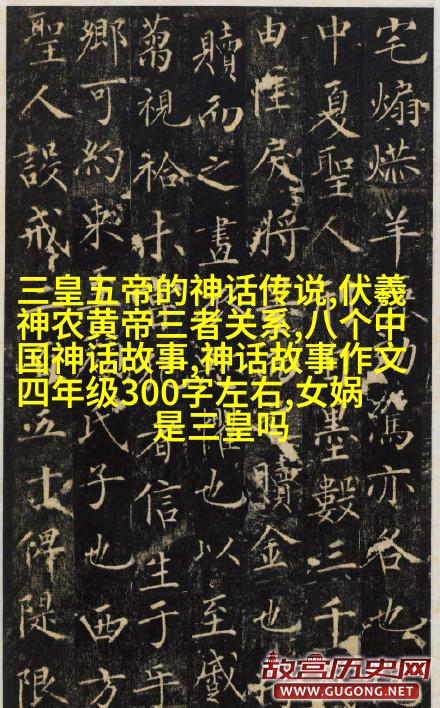 三皇五帝的神话传说,伏羲
神农黄帝三者关系,八个中
国神话故事,神话故事作文
四年级300字左右,女娲
是三皇吗
宅煽羊亦各也
中夏聖人墨數三千
由性戾將贖金也
贖而之也以至戚
視者信生于年
鄉可約束氏子也西方
聖人設戒五士俾隄限
故宫历史网
WWW.GUGONG.NET